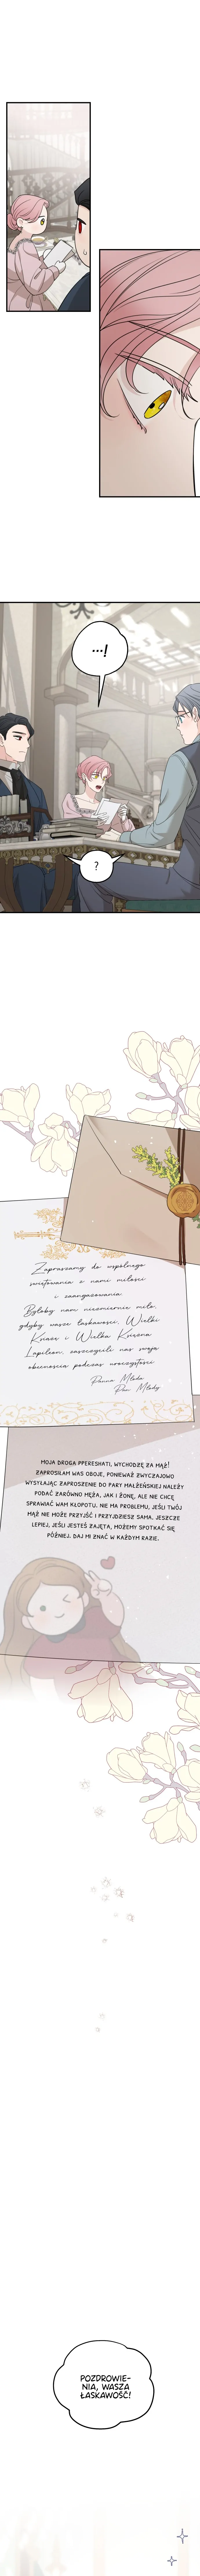 ...!
?
Zapraszamy do wspólnego
świętowania z nami miłości
i zaangażowania.
Byłoby nam niezmiernie miło,
gdyby wasze łaskawości, Wielki
Książę i Wielka Księżna
Lapileon, zaszczycili nas swoją
obecnością podczas uroczystości.
Panna Młoda
Pan Młody
MOJA DROGA PPERESHATI, WYCHODZĘ ZA MĄŻ!
ZAPROSIŁAM WAS OBOJE, PONIEWAŻ ZWYCZAJOWO
WYSYŁAJĄC ZAPROSZENIE DO PARY MAŁŻEŃSKIEJ NALEŻY
PODAĆ ZARÓWNO MĘŻA, JAK I ŻONĘ, ALE NIE CHCĘ
SPRAWIAĆ WAM KŁOPOTU. NIE MA PROBLEMU, JEŚLI TWÓJ
MĄŻ NIE MOŻE PRZYJŚĆ I PRZYJDZIESZ SAMA. JESZCZE
LEPIEJ, JEŚLI JESTEŚ ZAJĘTA, MOŻEMY SPOTKAĆ SIĘ
PÓŹNIEJ. DAJ MI ZNAĆ W KAŻDYM RAZIE.
POZDROWIE-
NIA, WASZA
ŁASKAWOŚĆ!